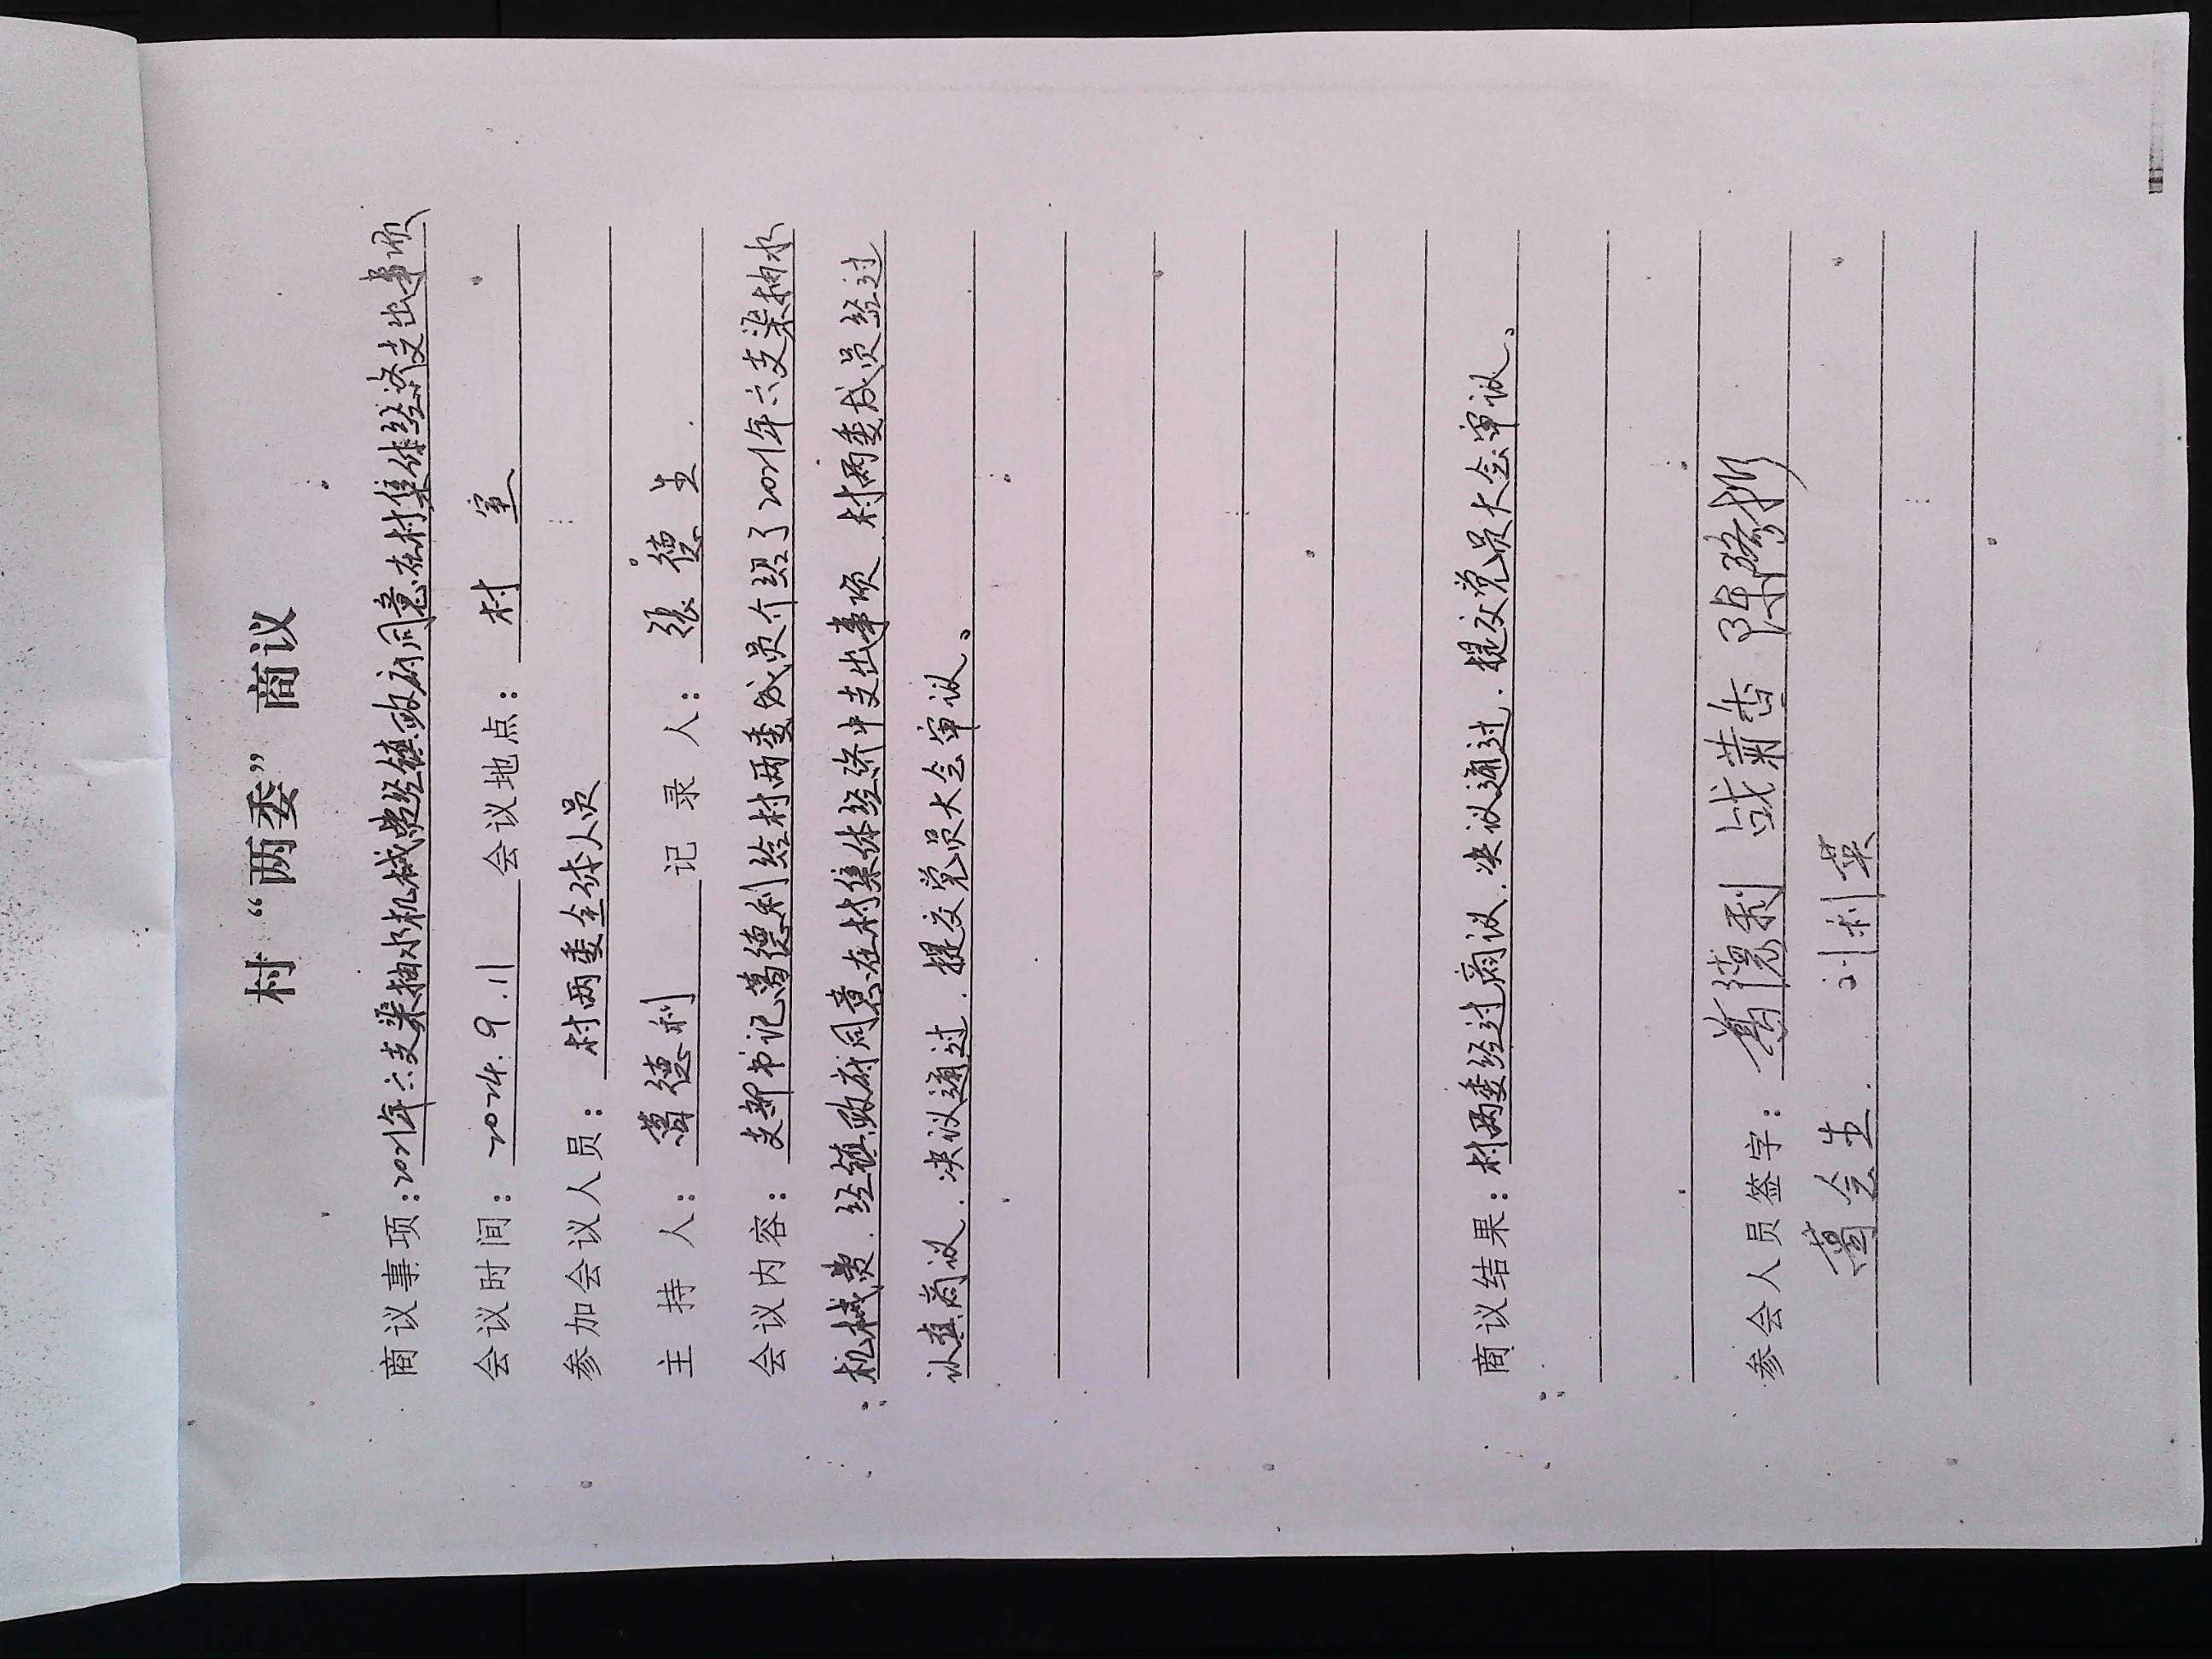 村“两委”商议
商议事项：2021年六支渠抽水机械费经镇政府同意在村集体经济支出事项
会议时间：2024.9.11 会议地点：村室
参加会议人员：村两委全体人员
主持人：葛德利 记录人：张德生
会议内容：支部书记葛德利给村两委成员介绍了2021年六支渠抽水
机械费.经镇政府同意在村集体经济中支出事项.村两委成员经过
认真商议.决议通过.提交党员大会审议。
商议结果：村两委经过商议.决议通过.提交党员大会审议。
参会人员签字：葛德利 战菊香
葛会生. 刘利英